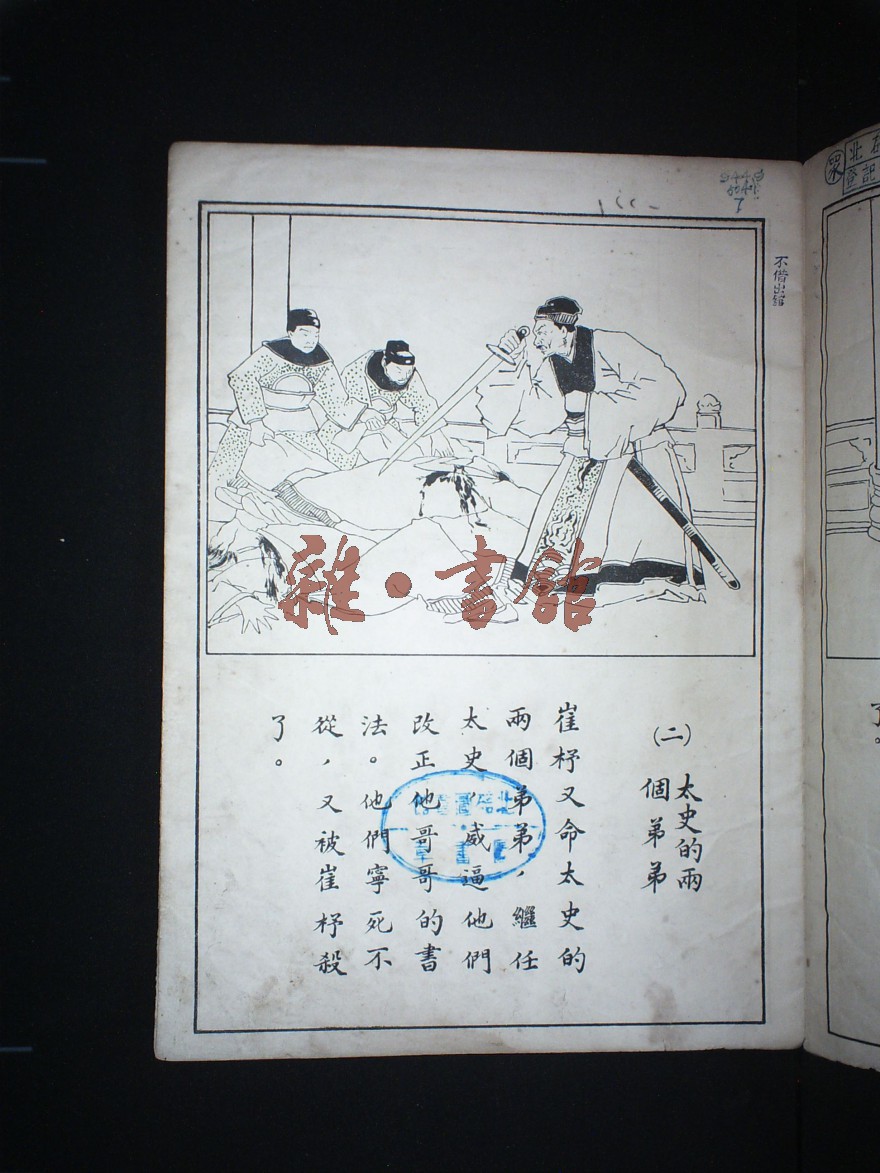 不借出館
雜·書館
(二)
太史的兩
個弟弟
崔杼又命太史的
兩個弟弟，繼任
太史，威逼他們
改正他哥哥的書
法。他們寧死不
從，又被崔杼殺
了。
北
登記
了。